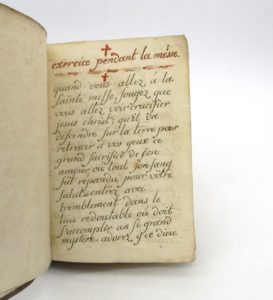 exercice pendant la messe.
quand vous allez, a la
sainte messe, songez que
vous allez voir crucifier
jesus christ; qu'il va
descendre sur la terre pour
retracer a vos yeux ce
grand sacrifice de son
amour, ou tout son sang
fut repandu, pour votre
salut. entrez avec
tremblement dans le
lieu redoutable ou doit
s'accomplir un si grand
mystere. adorez ce dieu